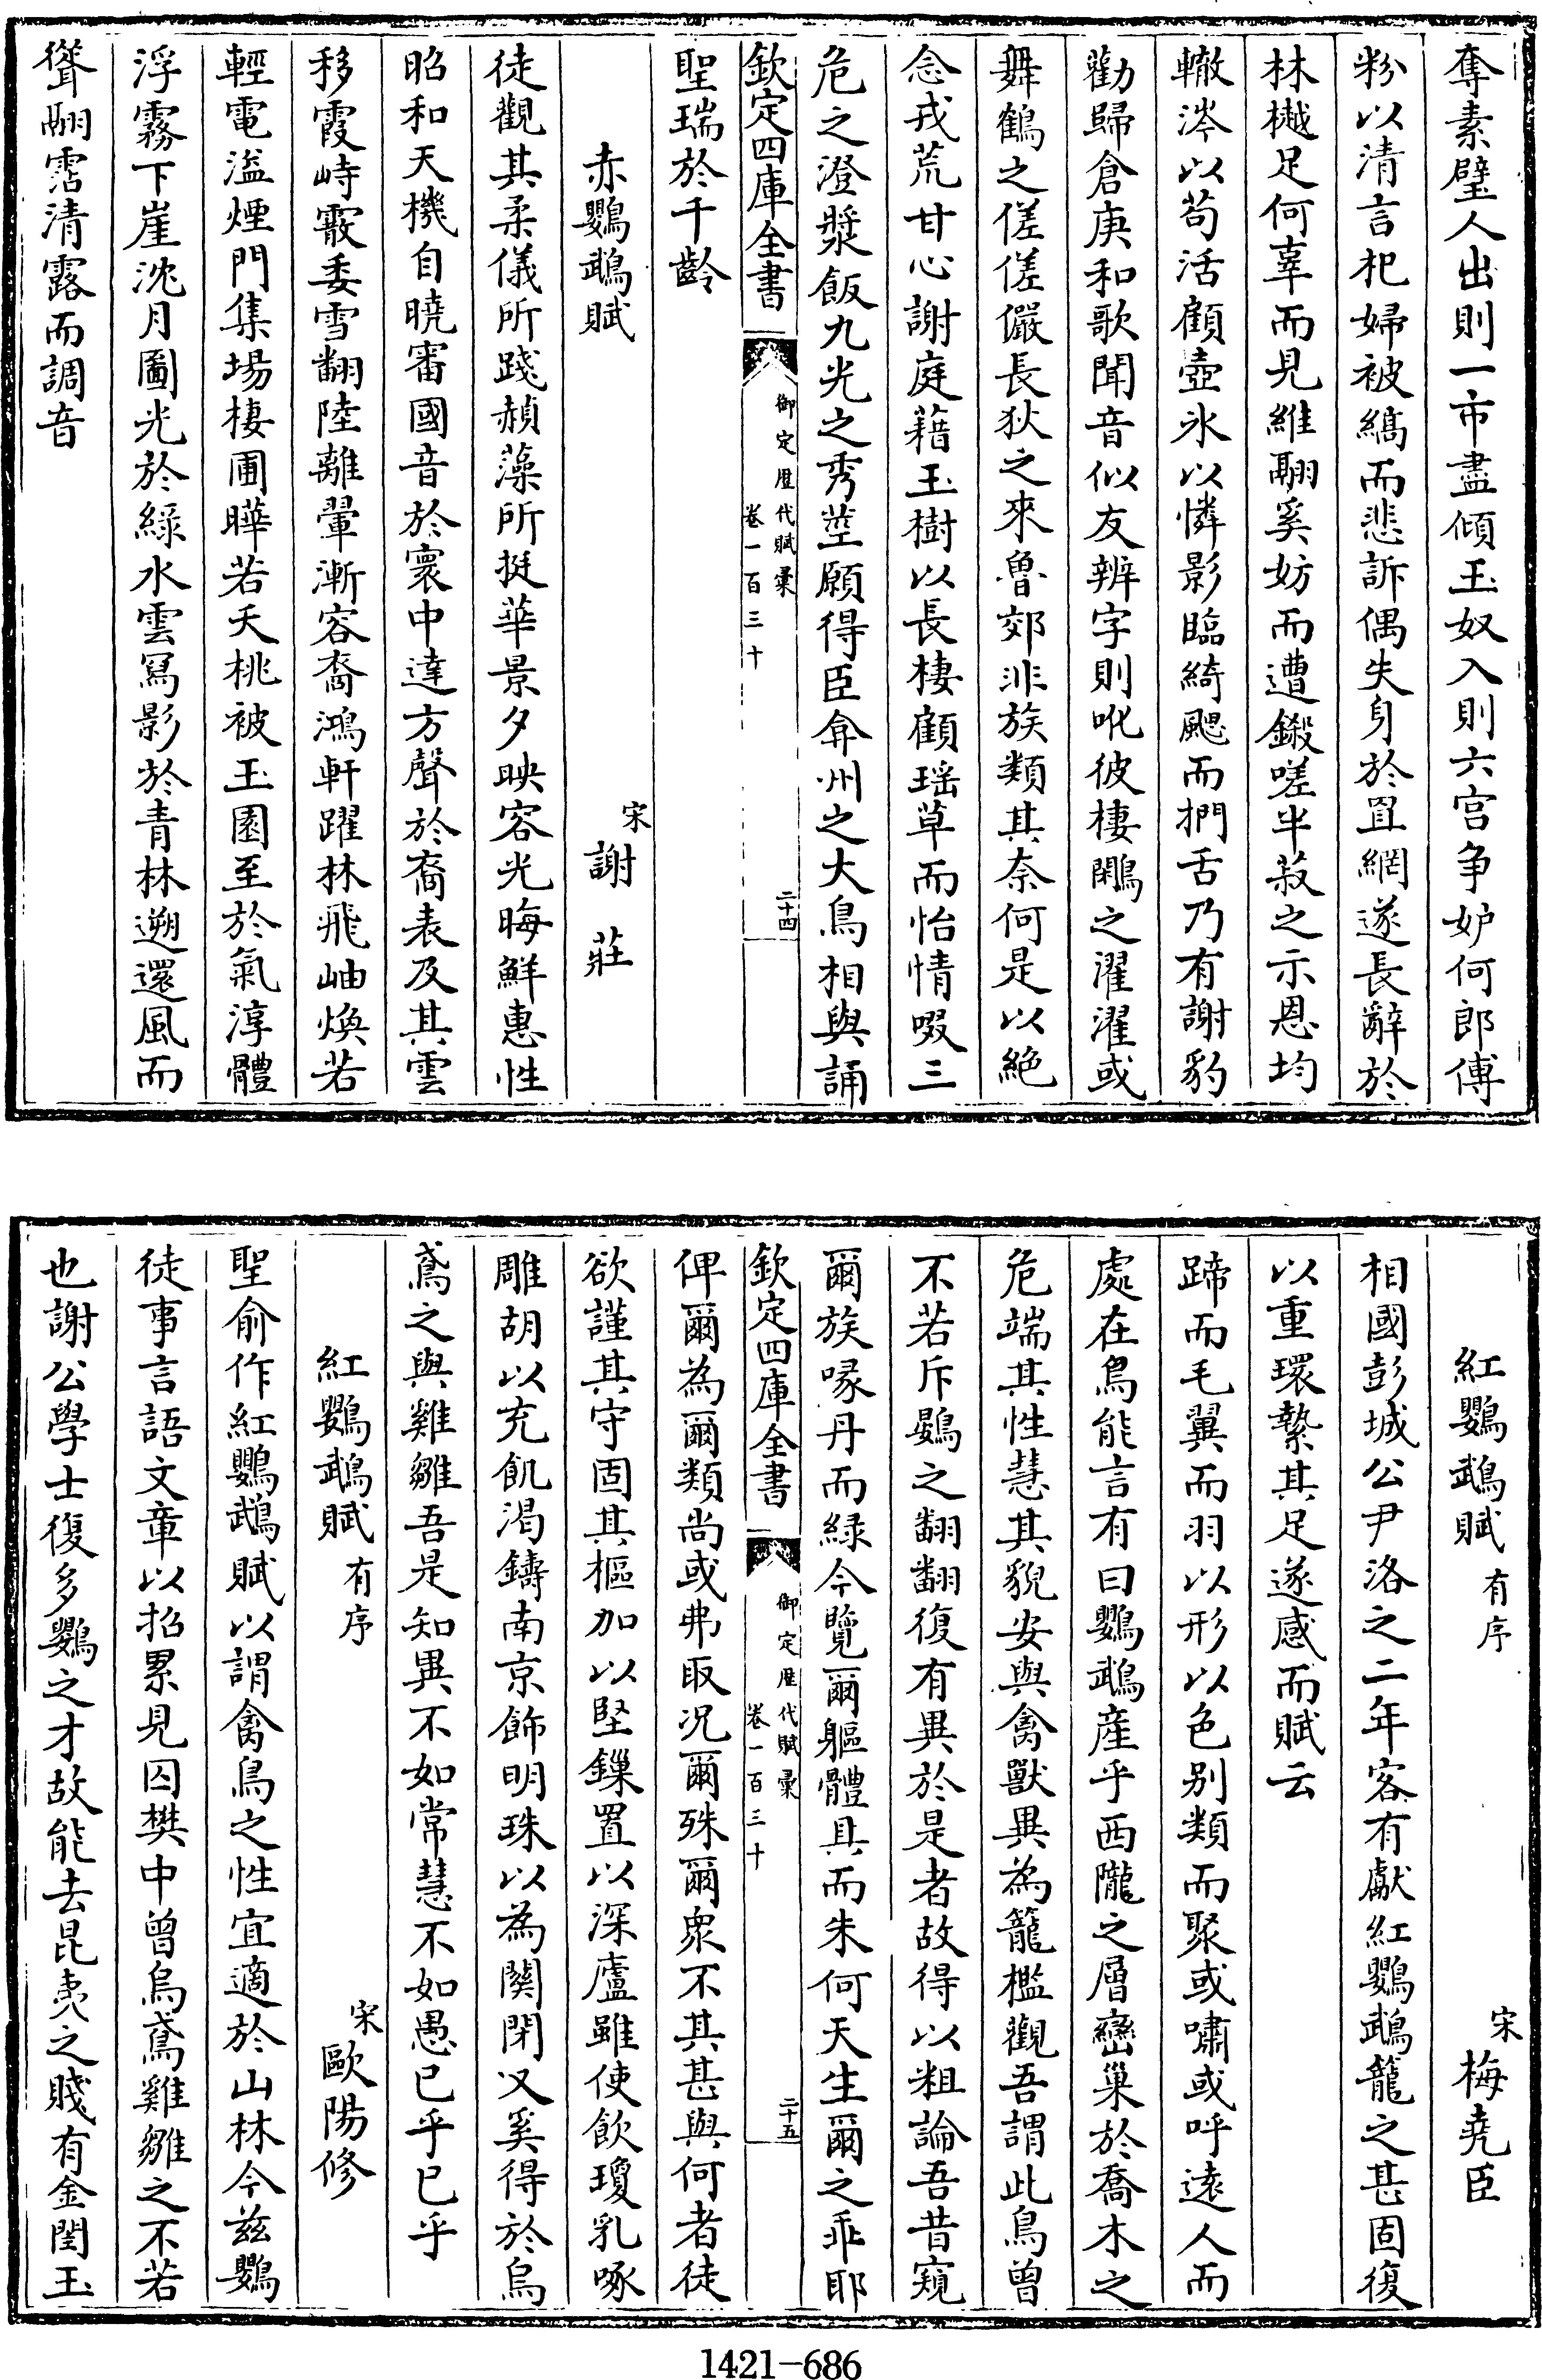 奪素璧人出則一市盡傾玉奴入則六宮爭妒何郎傅
粉以清言杞婦被縞而悲訴偶失身於罝網遂長辭於
林樾足何辜而見維翮奚妨而遭鎩嗟半菽之示恩均
轍涔以苟活顧壺氷以憐影臨綺颸而捫舌乃有謝豹
勸歸倉庚和歌聞音似友辨字則吪彼棲鷴之濯濯或
舞鶴之傞傞儼長狄之來魯郊非族類其奈何是以絕
念戎荒甘心謝庭藉玉樹以長棲顧瑤草而怡情啜三
危之澄漿飯九光之秀莖願得臣弇州之大鳥相與誦
欽定四庫全書
御定歷代賦彙
卷一百三十
二十四
聖瑞於千齡
赤鸚鵡賦
宋
謝莊
徒觀其柔儀所踐赬藻所挺華景夕映容光晦鮮惠性
昭和天機自曉審國音於寰中達方聲於裔表及其雲
移霞峙霰委雪翻陸離翬漸容裔鴻軒躍林飛岫煥若
輕電溢煙門集場棲圃曄若夭桃被玉園至於氣淳體
浮霧下崖沈月圖光於綠水雲寫影於青林遡還風而
聳翮霑清露而調音
紅鸚鵡賦
有序
宋
梅堯臣
相國彭城公尹洛之二年客有獻紅鸚鵡籠之甚固復
以重環縶其足遂感而賦云
蹄而毛翼而羽以形以色别類而聚或嘯或呼遠人而
處在鳥能言有曰鸚鵡産乎西隴之層巒巢於喬木之
危端其性慧其貌安與禽獸異為籠檻觀吾謂此鳥曾
不若斥鷃之翻翻復有異於是者故得以粗論吾昔窺
爾族喙丹而緑今覽爾軀體具而朱何天生爾之乖耶
欽定四庫全書
御定歷代賦彙
卷一百三十
二十五
俾爾為爾類尚或弗取况爾殊爾衆不其甚與何者徒
欲謹其守固其樞加以堅鏁置以深廬雖使飲瓊乳啄
雕胡以充飢渇鑄南京飾明珠以為關閉又奚得於烏
鳶之與雞雛吾是知異不如常慧不如愚已乎已乎
紅鸚鵡賦
有序
宋
歐陽修
聖俞作紅鸚鵡賦以謂禽鳥之性宜適於山林今兹鸚
徒事言語文章以招累見囚樊中曾烏鳶雞雛之不若
也謝公學士復多鸚之才故能去昆夷之賤有金閨玉
1421-686